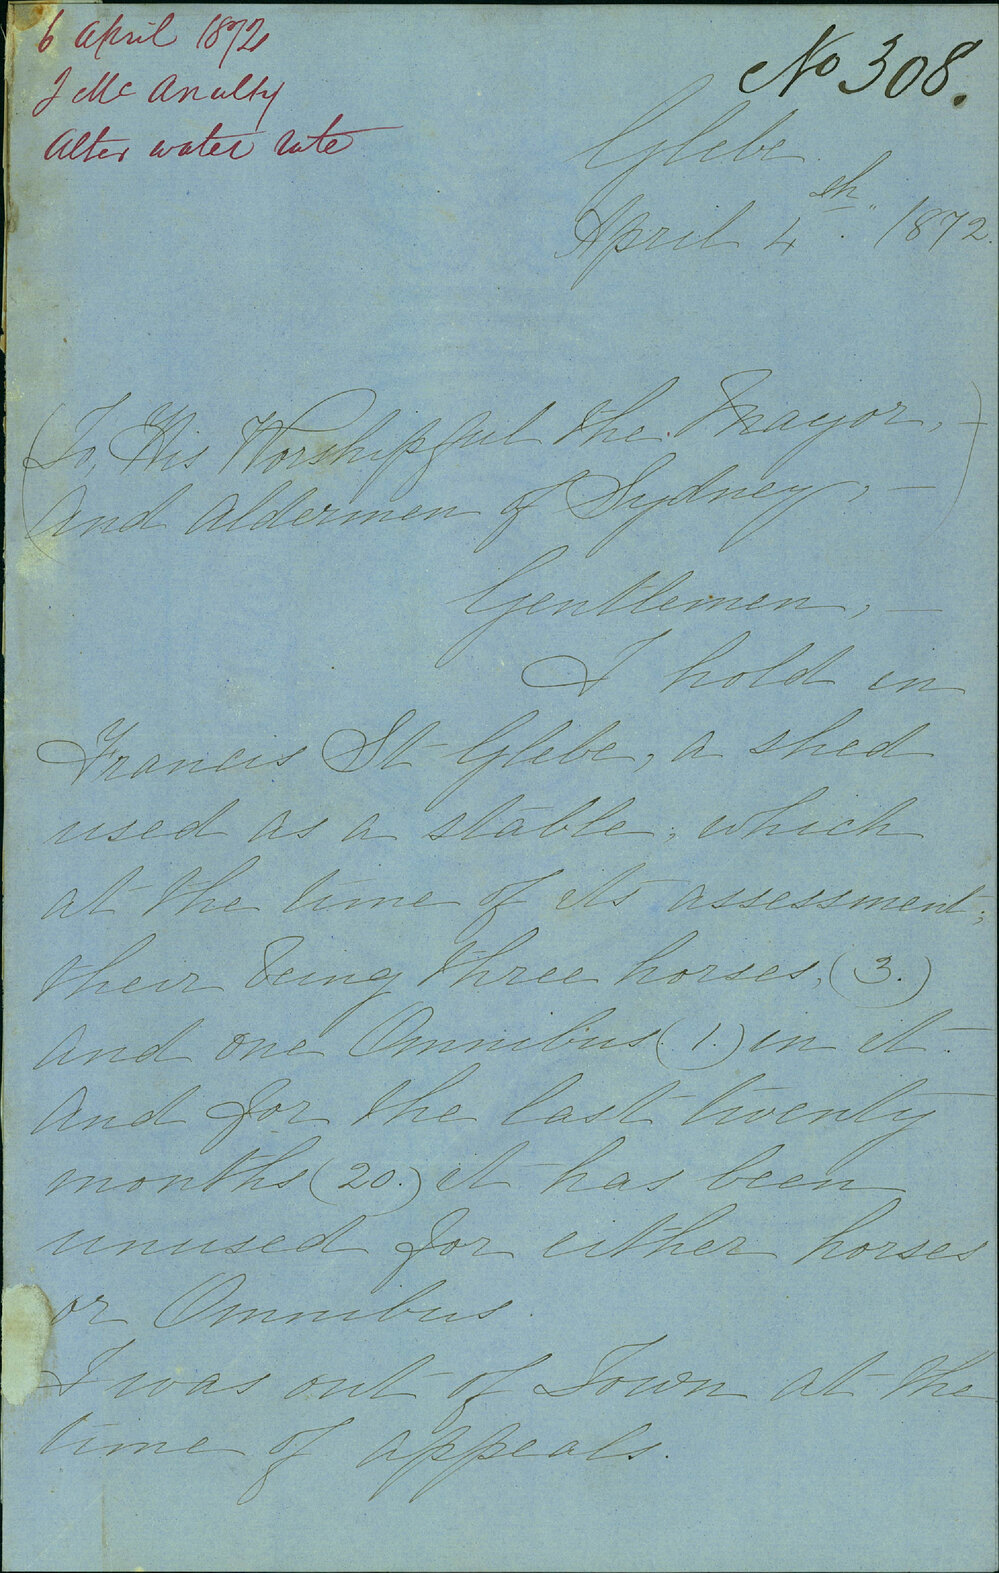 6 April 1872
J McAnulty
Alter water rate
No 308.
Glebe.
April 4th. 1872.
(To, His Worshipful the Mayor, -)
(and Aldermen of Sydney, -)
Gentlemen, -
I hold in
Francis St Glebe, a shed
used as a stable, which
at the time of its assessment,
their being three horses, (3.)
and one Omnibus (1.) in it.
and for the last twenty
months (20.) it has been
unused for either horses
or Omnibus.
I was out of Town at the
time of appeals.